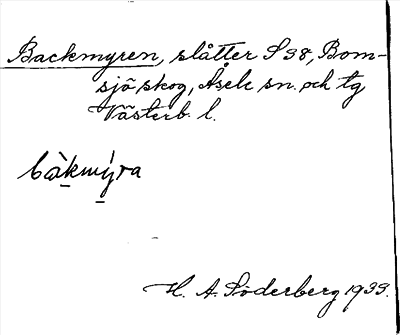 Backmyren, slåtter S 38, Bom-
sjö skog, Åsele sn. och tg
Västerb. l.
bàkmýra
H. A. Söderberg 1933.